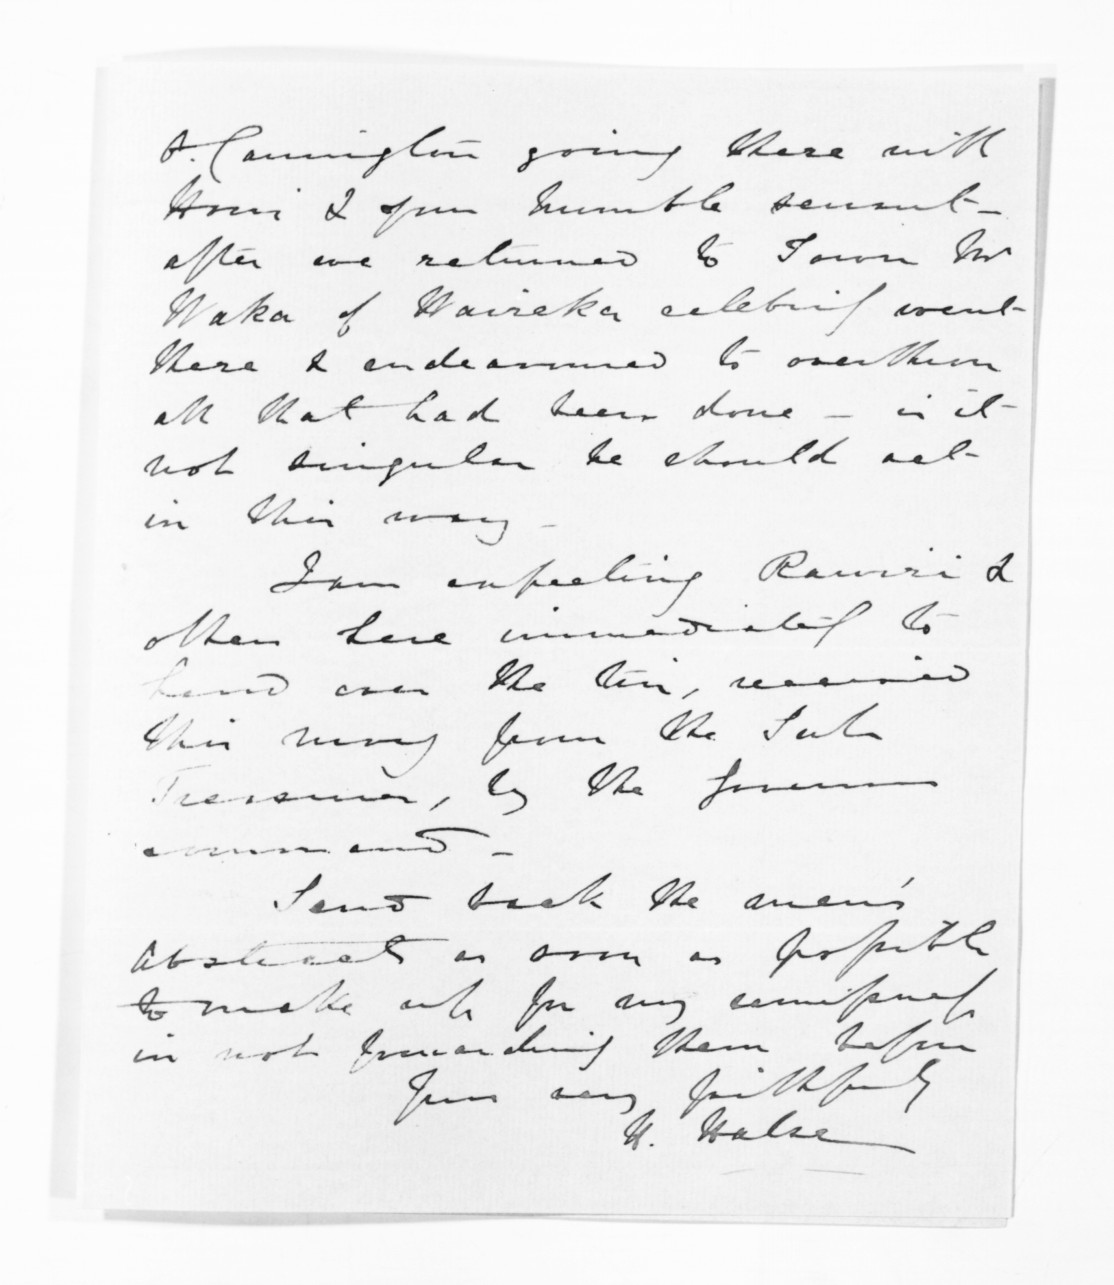 O. Carrington going there with
Honi & your humble servant -
after we returned to Town Mr
Waka of Waireka celebrity went
there & endeavoured to overthrow
all that had been done - is it
not singular he should act
in this way -
I am expecting Rawiri &
others here immediately to
hand over the tin, received
this morng from the Sub
Treasurer, by the Governors
command -
Send back the men's
abstract as soon as possible
to make up for my remissness
in not forwarding them before
Yours very faithfully
H. Halse